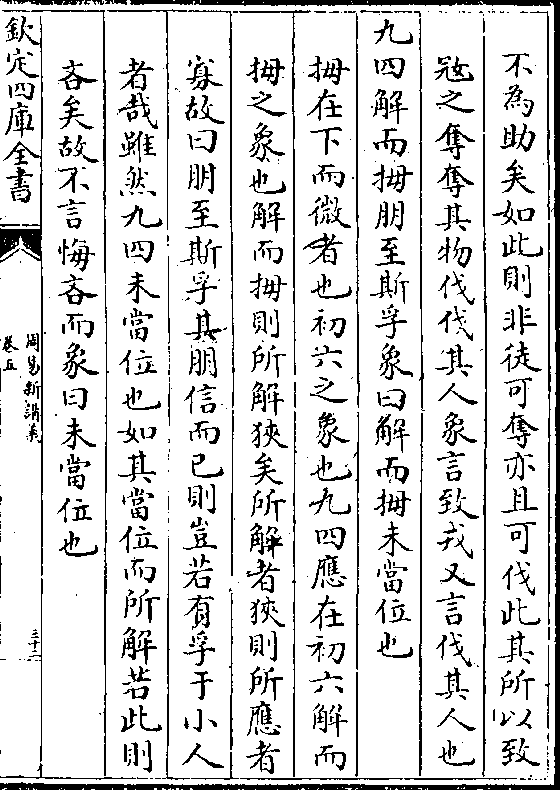 不為助矣如此則非徒可奪亦且可伐此其所以致
㓂之奪奪其物伐伐其人象言致戎又言伐其人也
九四解而拇朋至斯孚象曰解而拇未當位也
拇在下而微者也初六之象也九四應在初六解而
拇之象也解而拇則所解狹矣所解者狹則所應者
寡故曰朋至斯孚其朋信而已則豈若有孚于小人
者哉雖然九四未當位也如其當位而所解若此則
吝矣故不言悔吝而象曰未當位也
欽定四庫全書
周易新講義
卷五
三十二